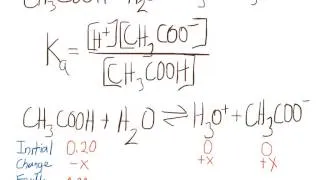 CH₃COOH + H₂O
Kₐ = [H⁺][CH₃COO⁻]
[CH₃COOH]
CH₃COOH + H₂O ⇌ H₃O⁺ + CH₃COO⁻
Initial 0.20 0 0
Change -x +x +x